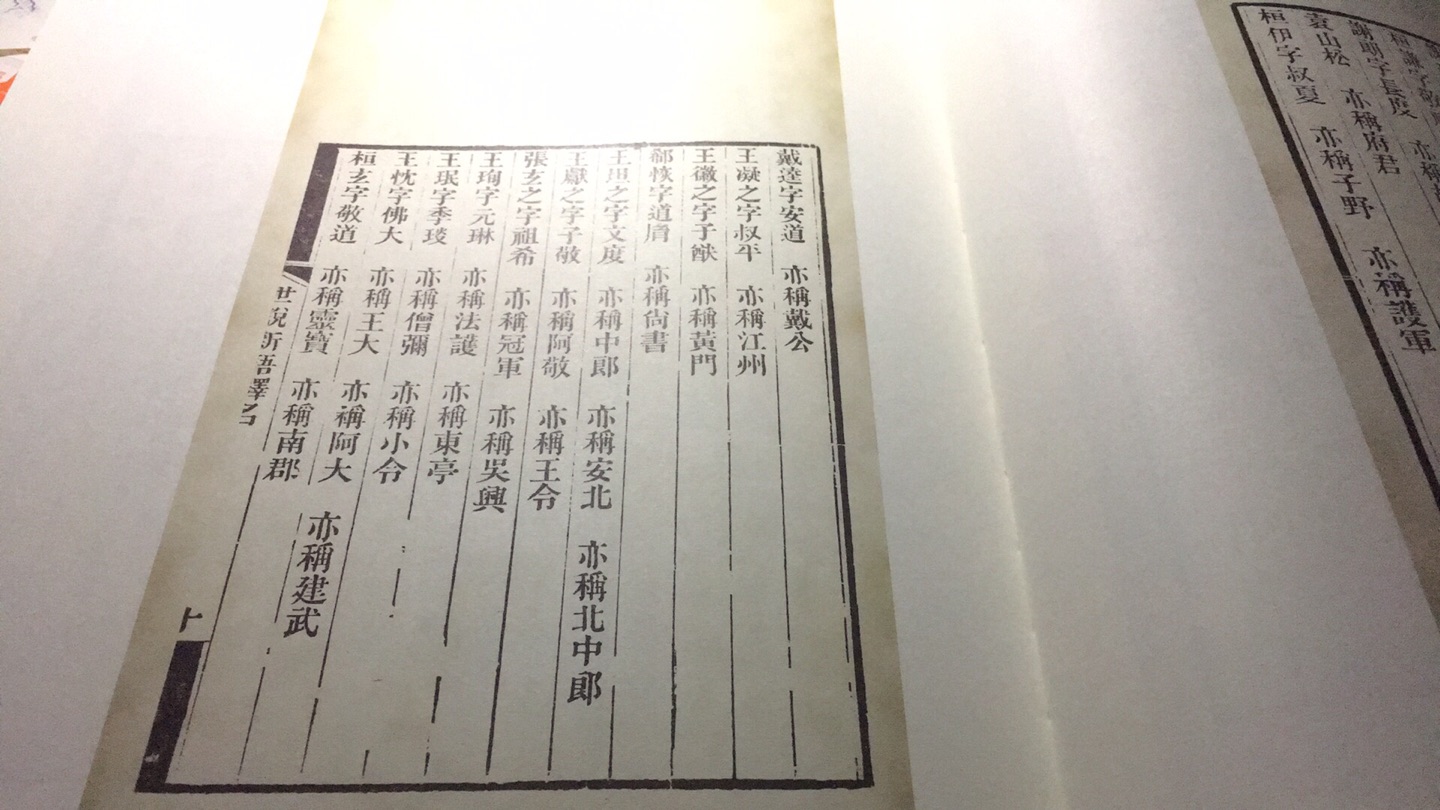 桓謙字敬
謝朗字長度 亦稱
袁山松 亦稱府君
桓伊字叔夏 亦稱子野 亦稱護軍
戴逵字安道 亦稱戴公
王凝之字叔平 亦稱江州
王徽之字子猷 亦稱黃門
郗恢字道胤 亦稱尙書
王坦之字文度 亦稱中郎 亦稱安北 亦稱北中郎
王獻之字子敬 亦稱阿敬 亦稱王令
張玄之字祖希 亦稱冠軍 亦稱吳興
王珣字元琳 亦稱法護 亦稱東亭
王珉字季琰 亦稱僧彌 亦稱小令
王忱字佛大 亦稱王大 亦稱阿大 亦稱建武
桓玄字敬道 亦稱靈寶 亦稱南郡
世說新語釋名